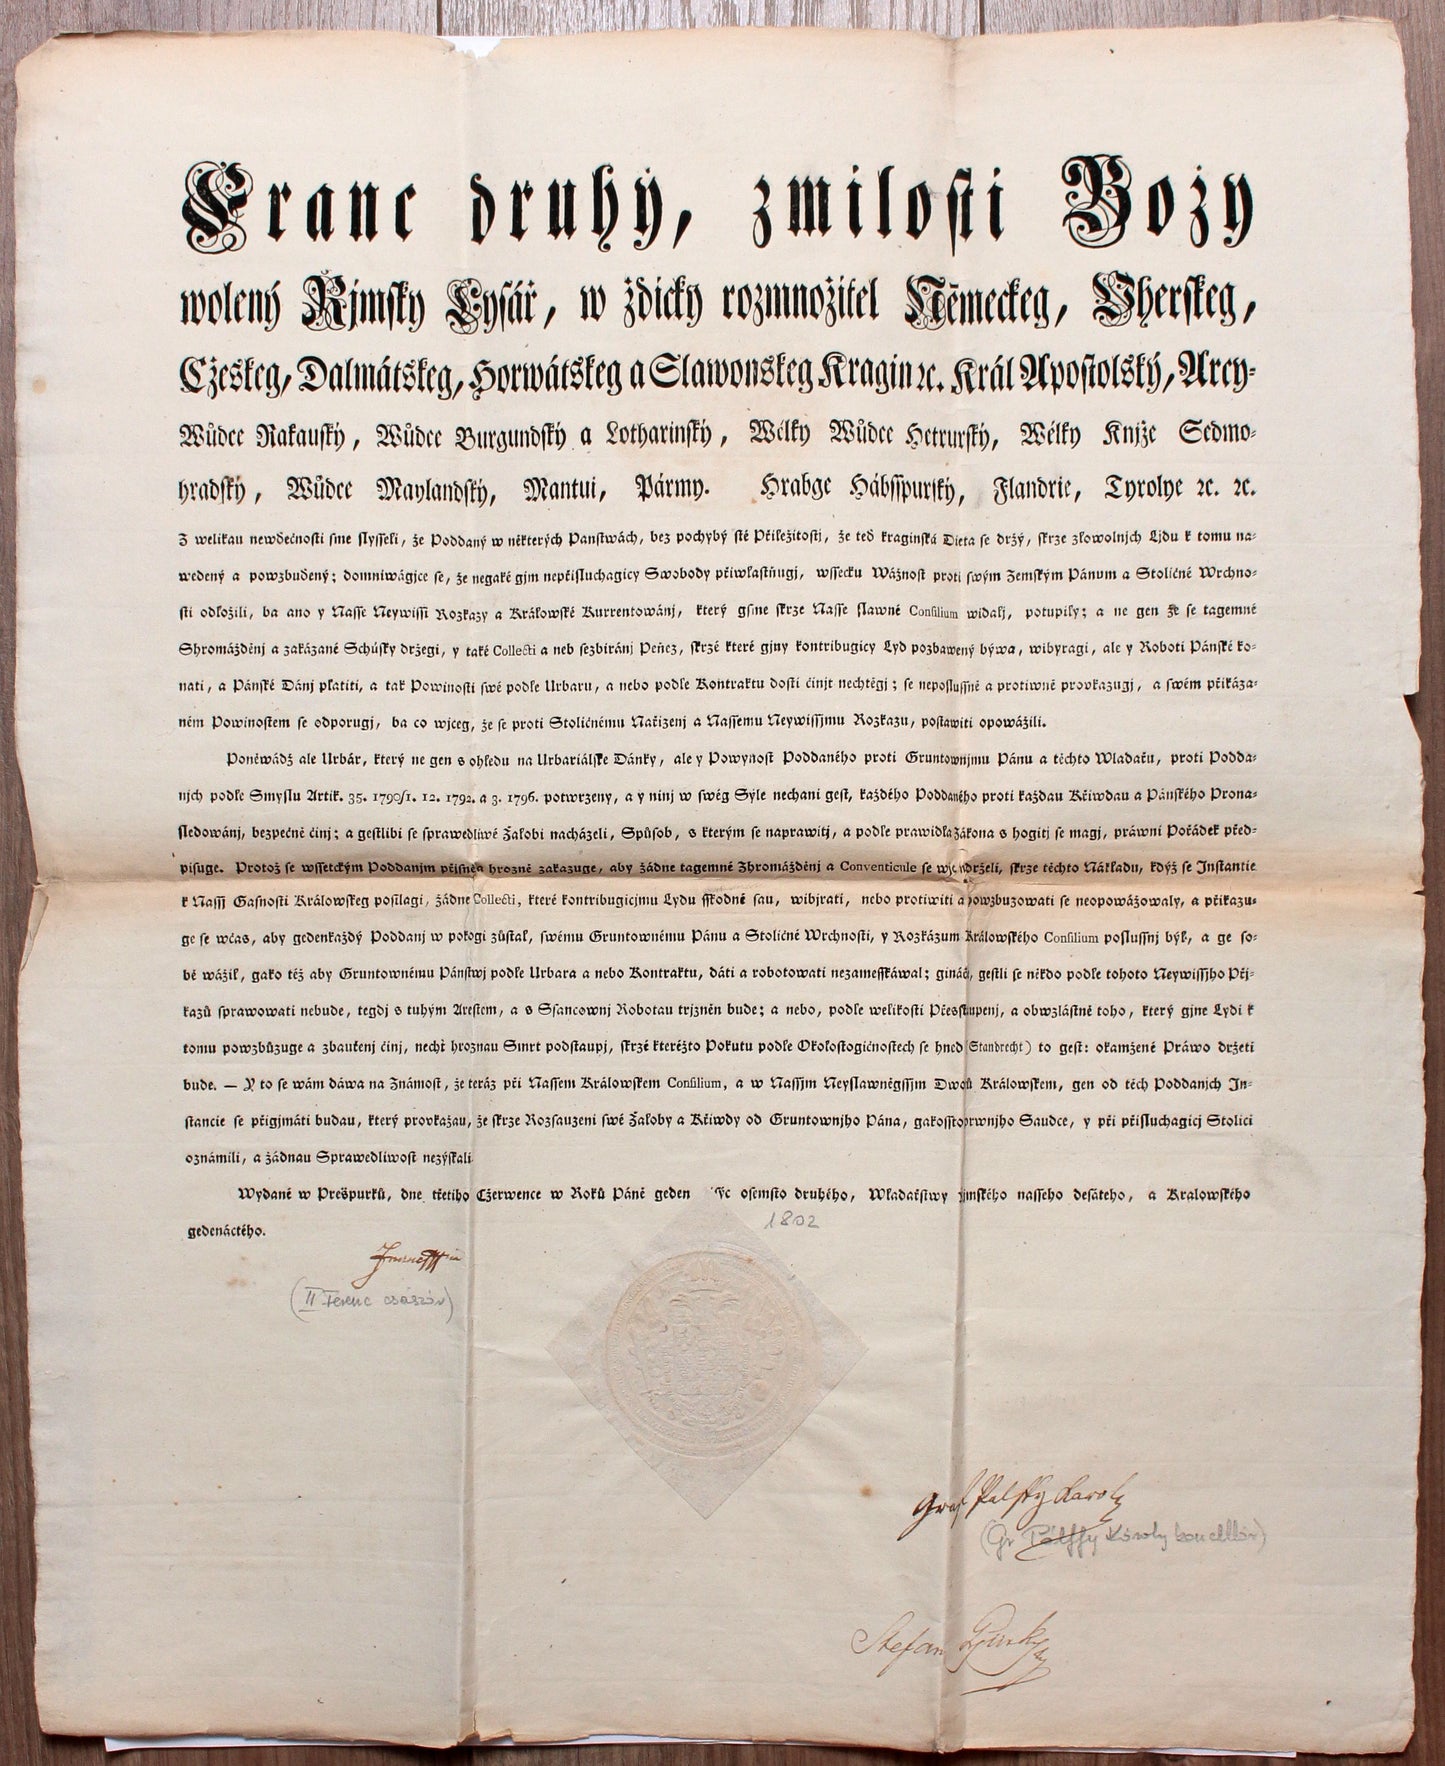 Franc druhý, zmilosti Božy
wolený Ržjmský Cysář, w ždicky rozmnožitel Německeg, Vherskeg,
Cžeskeg, Dalmátskeg, Horwátskeg a Slawonskeg Kragin ꝛc. Král Apostolský, Arcy-
Wůdce Rakauský, Wůdce Burgundský a Lotharinský, Wélky Wůdce Hetrurský, Wélky Knjže Sedmo-
hradský, Wůdce Maylandský, Mantui, Pármy. Hrabge Hábsspurský, Flandrie, Tyrolye ꝛc. ꝛc.
Z welikau newděčnosti sme slysseli, že Poddaný w některých Panstwách, bez pochybý sté Přiležitosti, že teď kraginská Dieta se držý, skrze zlowolnjch Ljdu k tomu na-
wedený a powzbudený; domniwágjce se, že negaké gjm nepřisluchagicy Swobody přiwlastňugj, wssecku Wážnost proti swým Zemským Pánum a Stoličné Wrchno-
sti odložili, ba ano y Nasse Neywissi Rozkazy a Králowské Kurrentowánj, který gsme skrze Nasse slawné Consilium widalj, potupily; a ne gen že se tagemné
Shromážděnj a zakázané Schúsky držegi, y také Collecti a neb sezbiránj Peňez, skrzé které gjny kontribugicy Lyd pozbawený býwa, wibyragi, ale y Roboti Pánské ko-
nati, a Pánské Dánj platiti, a tak Powinosti swé podle Urbaru, a nebo podle Kontraktu dosti činjt nechtěgj; se neposlussné a protiwné prowkazugj, a swém přikáza-
ném Powinostem se odporugj, ba co wjceg, že se proti Stoličnému Nařizenj a Nassemu Neywissjmu Rozkazu, postawiti opowážili.
Poněwádž ale Urbár, který ne gen s ohledu na Urbariálske Dánky, ale y Powynost Poddaného proti Gruntownjmu Pánu a těchto Wladařu, proti Podda-
njch podle Smyslu Artik. 35. 1790/1. 12. 1792. a 3. 1796. potwrzeny, a y ninj w swég Syle nechani gest, každého Poddaného proti každau Křiwdau a Pánského Prona-
sledowánj, bezpečně činj; a gestlibi se sprawedliwé Žalobi nacházeli, Spůsob, s kterým se naprawitj, a podle prawidla zákona s hogitj se magj, práwni Pořádek před-
pisuge. Protož se wssetckým Poddanjm přisně a hrozně zakazuge, aby žádne tagemné Zhromážděnj a Conventicule se drželi, skrze těchto Nákladu, kdýž se Instantie
k Nassj Gasnosti Králowskeg posilagi, žádne Collecti, které kontribugicjmu Lydu sskodné sau, wibjrati, nebo protiwiti a powzbuzowati se neopowážowaly, a přikazu-
ge se wčas, aby gedenkaždý Poddanj w pokogi zůstal, swému Gruntownému Pánu a Stoličné Wrchnosti, y Rozkázum Králowského Consilium poslussnj býl, a ge so-
bě wážil, gako též aby Gruntownému Pánstwj podle Urbara a nebo Kontraktu, dáti a robotowati nezamesskáwal; gináč, gestli se někdo podle tohoto Neywissjho Přj-
kazů sprawowati nebude, tegdj s tuhým Arestem, a s Ssancownj Robotau trjzněn bude; a nebo, podle welikosti Přesstupenj, a obwzlástně toho, který gjne Lydi k
tomu powzbůzuge a zbauřenj činj, nechť hroznau Smrt podstaupj, skrzé kteréžto Pokutu podle Okolostogičnostech se hned (Standrecht) to gest: okamžené Práwo držeti
bude. — Y to se wám dáwa na Známost, že teráz při Nassem Králowskem Consilium, a w Nassjm Neyslawněgssjm Dwoů Králowskem, gen od těch Poddanjch In-
stancie se přigjmáti budau, který prowkažau, že skrze Rozsauzeni swé Žaloby a Křiwdy od Gruntownjho Pána, gakosstoprwnjho Saudce, y při přisluchagicj Stolici
oznámili, a žádnau Sprawedliwost nezýskali
Wydané w Prešpurků, dne třetiho Cžerwence w Roků Páně geden osemsto druhého, Wladařstwy nasseho desáteho, a Kralowského
gedenáctého.
1802
(II Ferenc császár)
Graf Palffy Karoly
(Gr Pálffy Károly kancellár)
Stefan